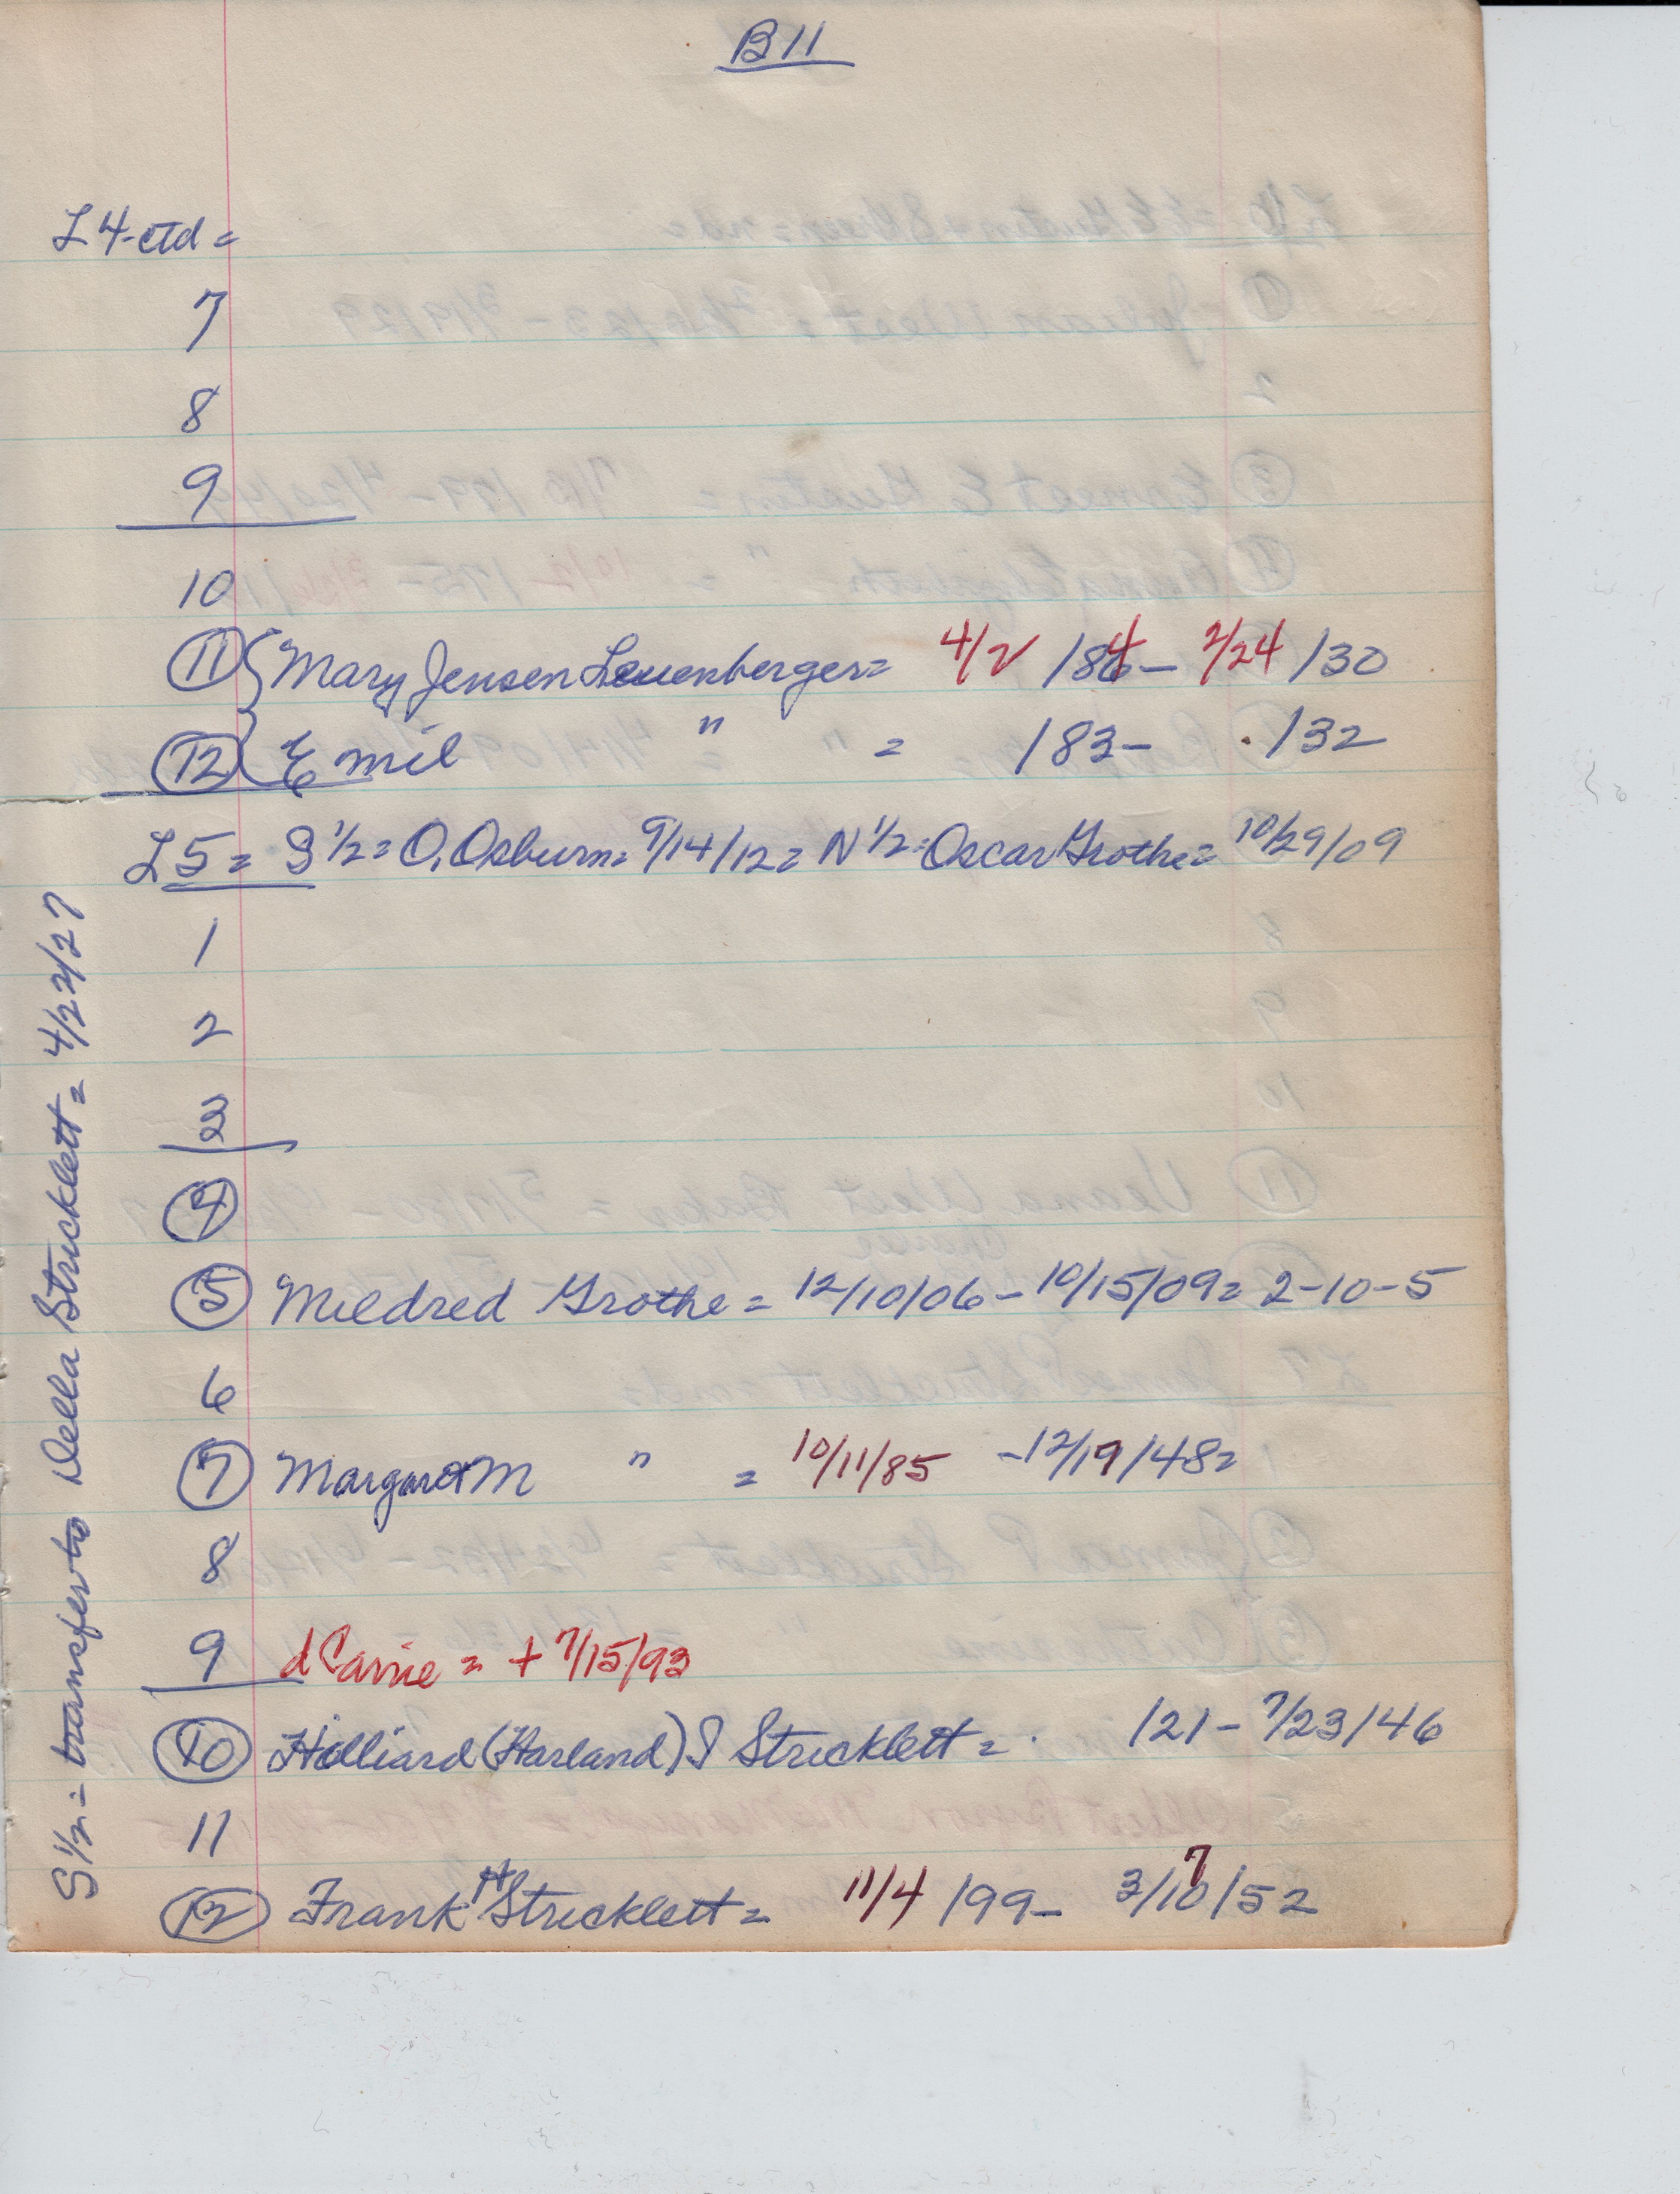 B11
L4-ctd =
7
8
9
10
11 Mary Jensen Leuenberger = 4/2 /84 - 2/24 /30
12 Emil " = /83- /32
L5 = S 1/2 = O. Osburn = 9/14/12 = N 1/2 = Oscar Grothe = 10/29/09
1
2
3
4
5 Mildred Grothe = 12/10/06 - 10/15/09 = 2-10-5
6
7 Margaret M " = 10/11/85 - 12/19/48 =
8
9 d Carrie = + 7/15/93
10 Hilliard (Harland) S Stricklett = /21 - 7/23/46
11
12 Frank H Stricklett = 11/4 /99 - 3/17/52
S 1/2 = transfer to Della Stricklett = 4/22/27